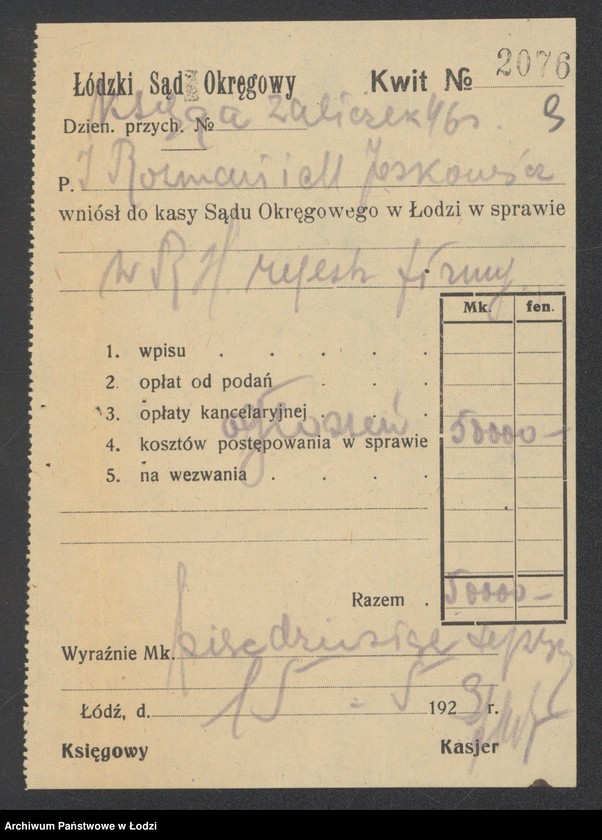 Łódzki Sąd Okręgowy
Kwit № 2076
Księga zaliczek 46
Dzien. przych. №
9
P. J Rozman i M Joskowicz
wniósł do kasy Sądu Okręgowego w Łodzi w sprawie
w R H rejestr firmy.
Mk. fen.
1. wpisu . . . . .
2. opłat od podań . . .
3. opłaty kancelaryjnej . . .
ogłoszeń 50000 —
4. kosztów postępowania w sprawie
5. na wezwania . . . .
Razem . 50000 —
Wyraźnie Mk. pięćdziesiąt tysięcy
Łódź, d. 15 - 5 1923 r.
Księgowy Kasjer
Archiwum Państwowe w Łodzi